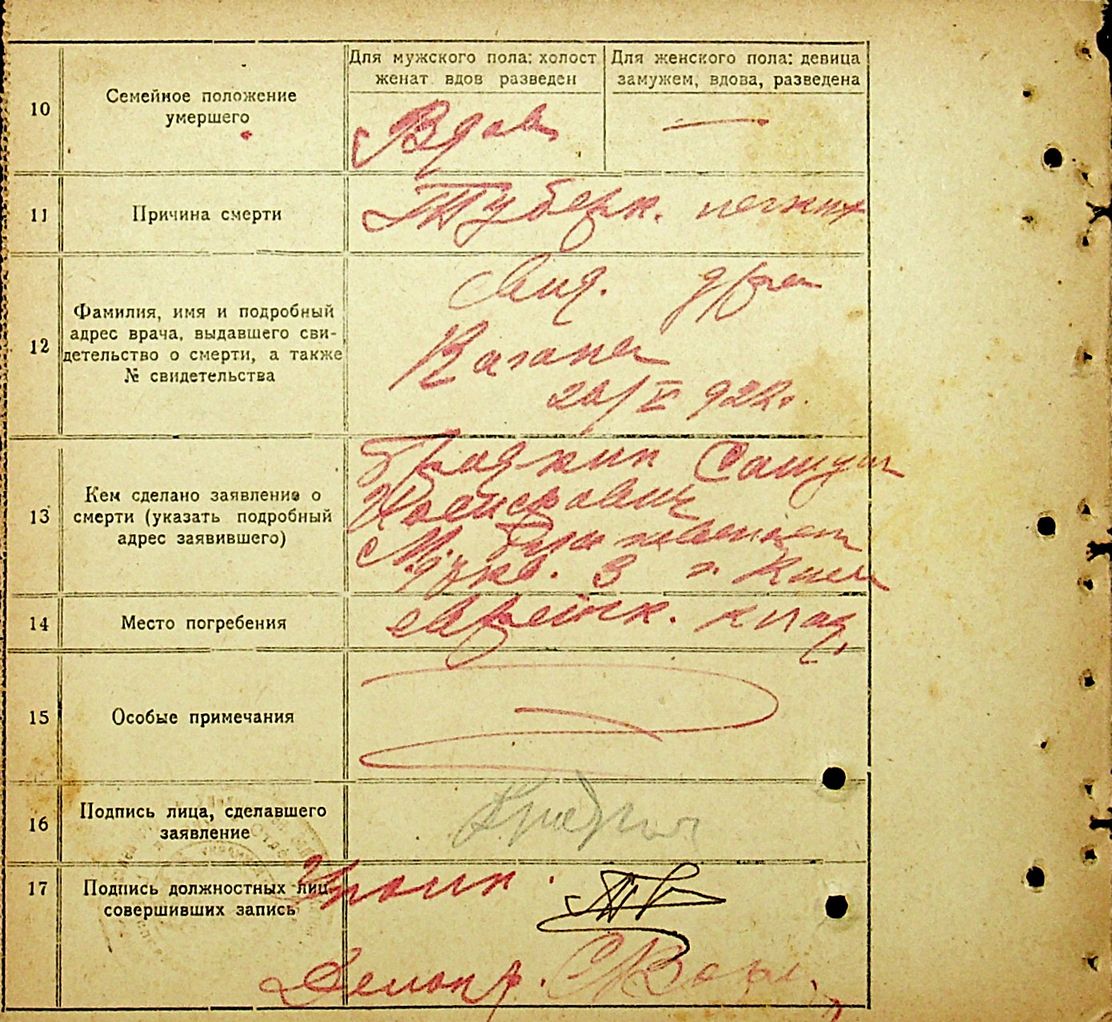 10
Семейное положение
умершего
Для мужского пола: холост
женат вдов разведен
Для женского пола: девица
замужем, вдова, разведена
Вдов
—
11
Причина смерти
Туберк. легких
12
Фамилия, имя и подробный
адрес врача, выдавшего сви-
детельство о смерти, а также
№ свидетельства
Свид. д/ра
Кагана
922.
13
Кем сделано заявление о
смерти (указать подробный
адрес заявившего)
3 г. Киев
14
Место погребения
еврейск. клад,
15
Особые примечания
16
Подпись лица, сделавшего
заявление
17
Подпись должностных лиц
совершивших запись
Делопр.